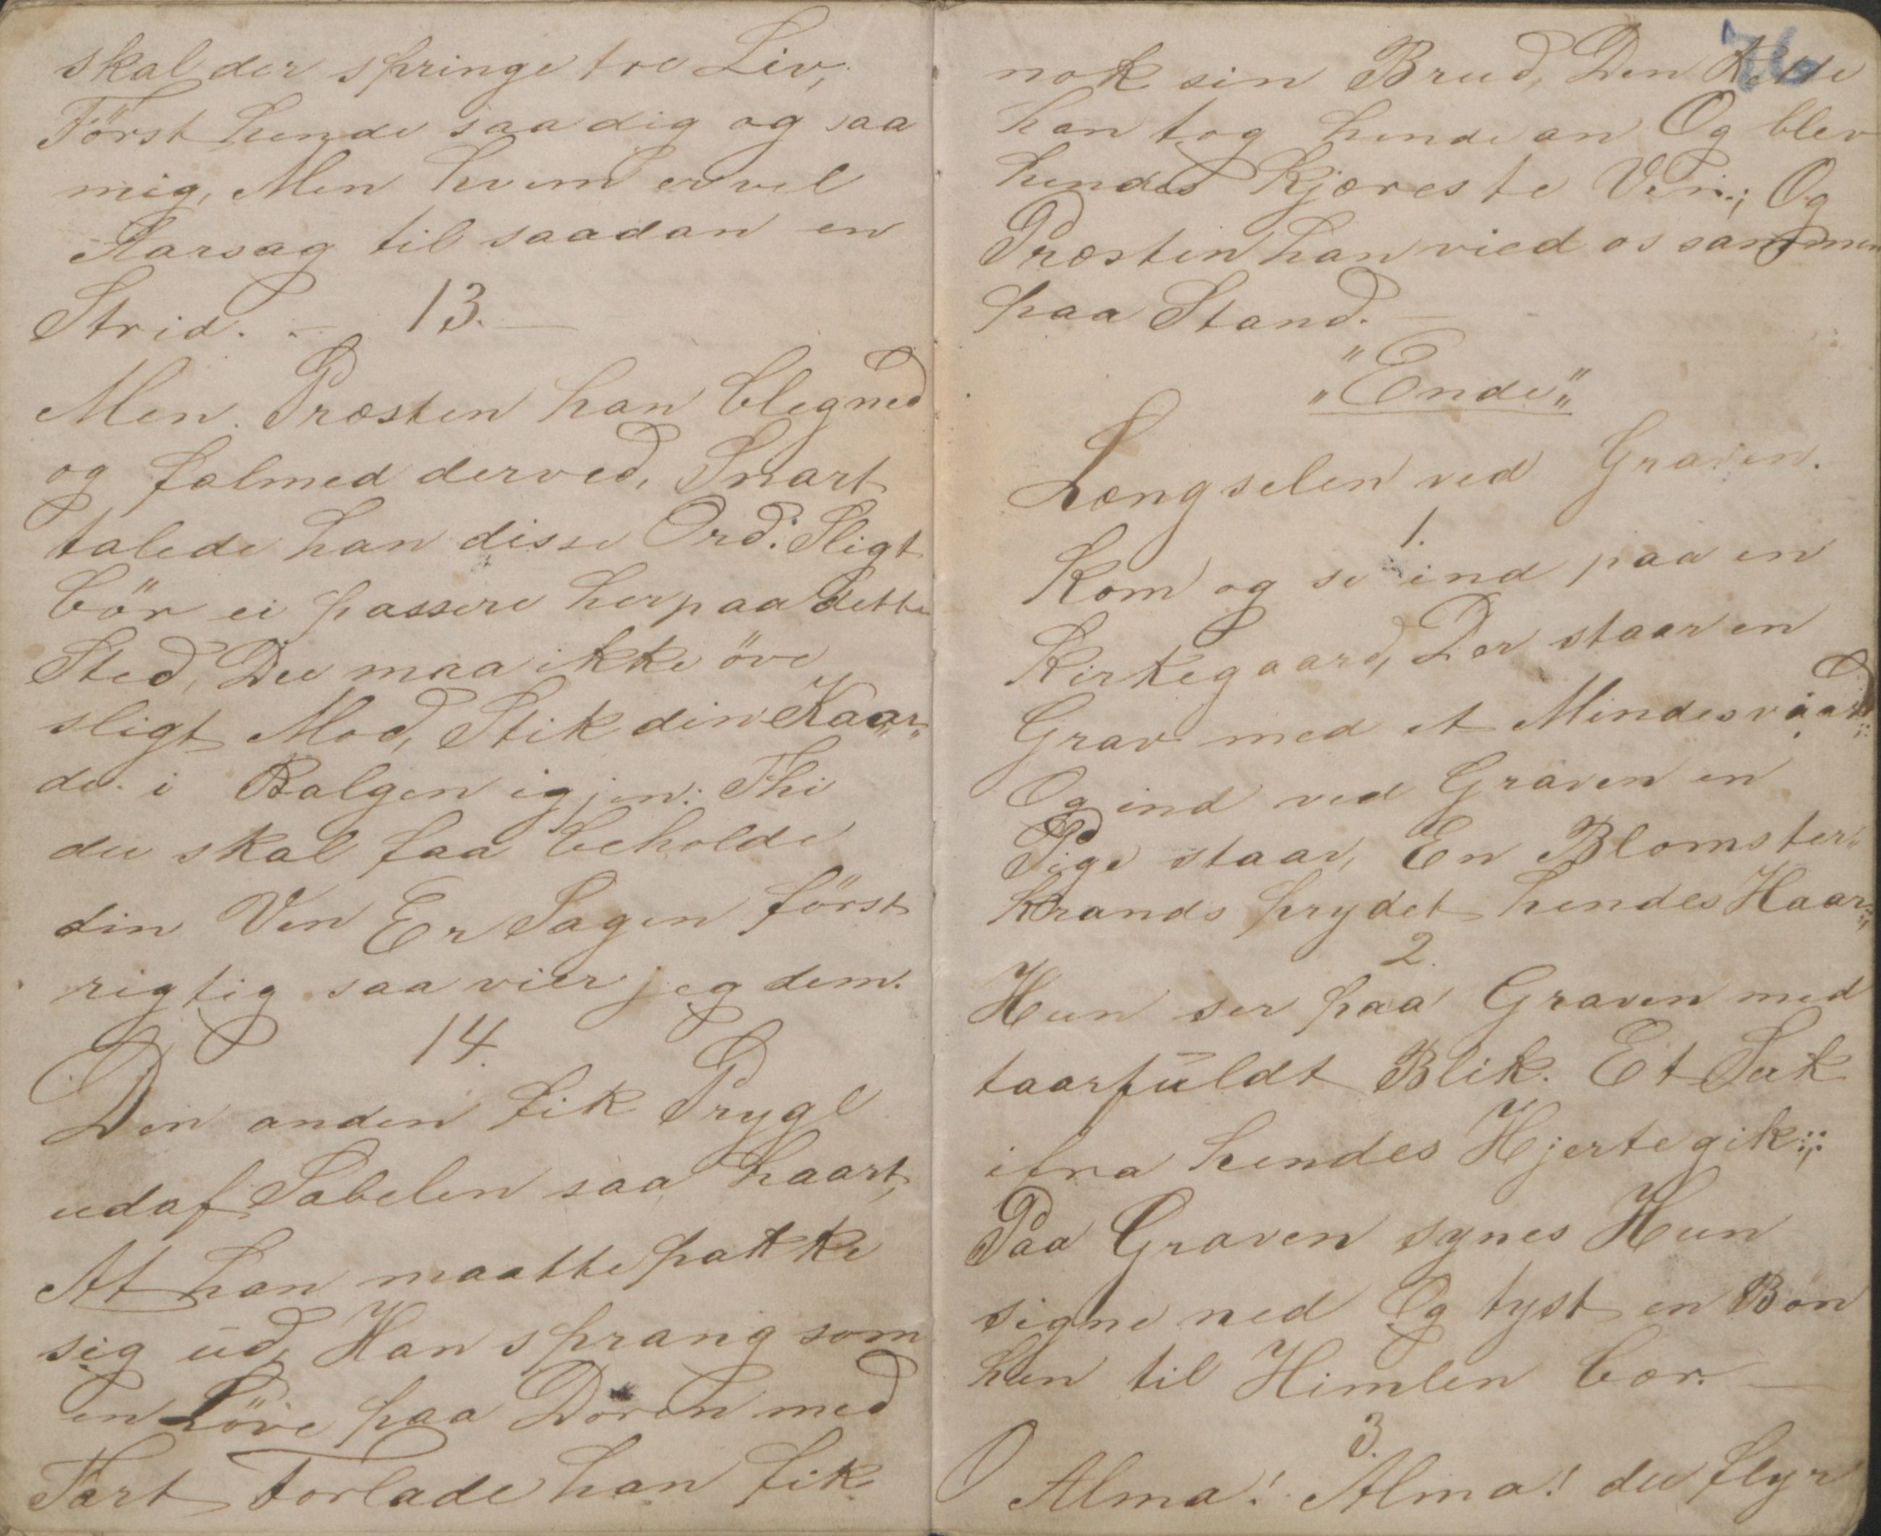 skal der springe tre Liv,
Först hende saa dig og saa
mig, Men hvem er vel
Aarsag til saadan en
Strid. - 13. -
Men Præsten han blegned
og falmed derved, Snart
talede han disse Ord: Sligt
bör ei passere her paa dette
Sted, Du maa ikke öve
sligt Mod, Stik din Kaar„
de i Balgen igjen: Thi
du skal faa beholde
din Ven Er Sagen först
rigtig saa vier jeg dem.
14.
Den anden fik Prygl
udaf Sabelen saa haart,
At han maatte pakke
sig ud, Han sprang som
en Löve paa Doren med
Fart Forlade han fik
76
nok sin Brud, Den
han tog hende an Og blev
hendes kjæreste Ven; Og
Præsten han vied os sammen
paa Stand. -
„Ende„
Længselen ved Graven.
1.
Kom og se ind paa en
Kirkegaard, Der staar en
Grav med et
Og ind ved Graven en
Pige staar, En Blomster„
krands prydet hendes Haar
2.
Hun ser paa Graven med
taarfuldt Blik. Et Suk
ifra hendes Hjerte gik:;:
Paa Graven synes Hun
signe ned Og tyst en Bön
hun til Himlen bær. -
3.
O Alma! Alma! du flyr